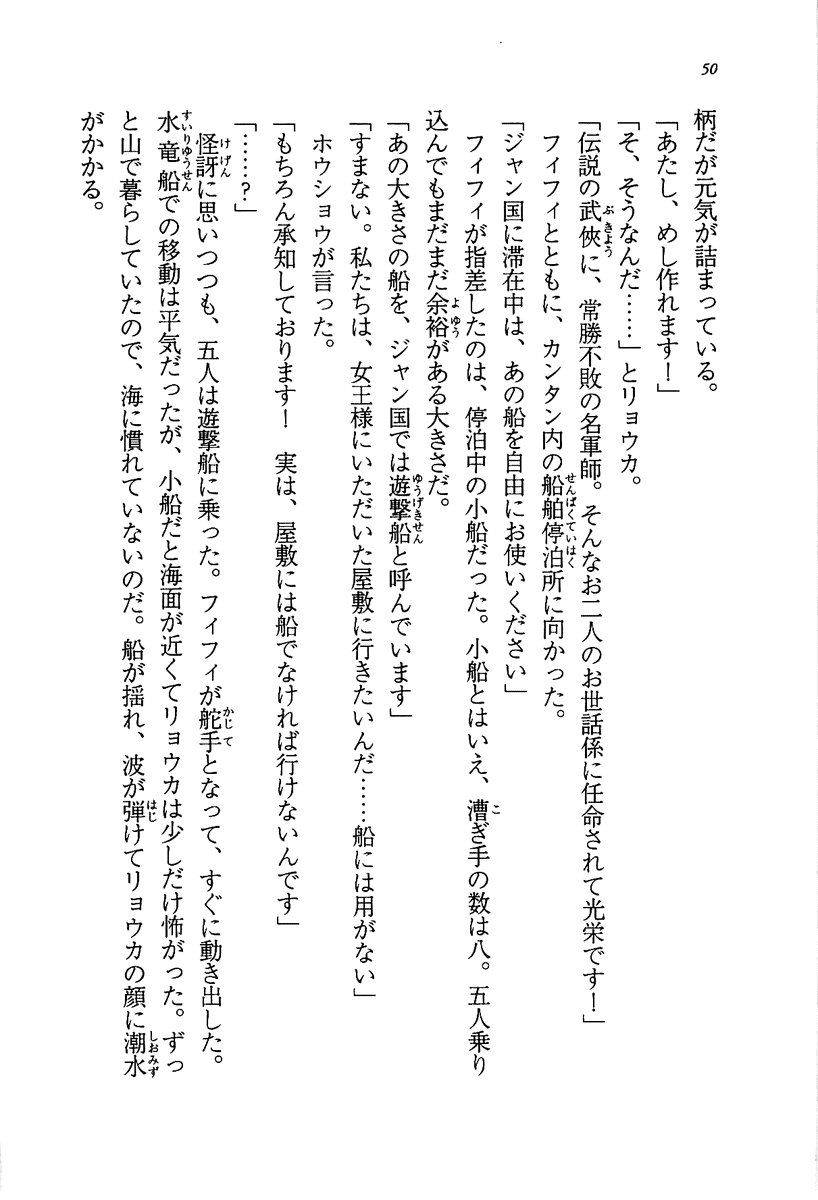 50
柄だが元気が詰まっている。
「あたし、めし作れます！」
「そ、そうなんだ……」とリョウカ。
「伝説の武俠に、常勝不敗の名軍師。そんなお二人のお世話係に任命されて光栄です！」
フィフィとともに、カンタン内の船舶停泊所に向かった。
「ジャン国に滞在中は、あの船を自由にお使いください」
フィフィが指差したのは、停泊中の小船だった。小船とはいえ、漕ぎ手の数は八。五人乗り
込んでもまだまだ余裕がある大きさだ。
「あの大きさの船を、ジャン国では遊撃船と呼んでいます」
「すまない。私たちは、女王様にいただいた屋敷に行きたいんだ……船には用がない」
ホウショウが言った。
「もちろん承知しております！　実は、屋敷には船でなければ行けないんです」
「……？」
怪訝に思いつつも、五人は遊撃船に乗った。フィフィが舵手となって、すぐに動き出した。
水竜船での移動は平気だったが、小船だと海面が近くてリョウカは少しだけ怖がった。ずっ
と山で暮らしていたので、海に慣れていないのだ。船が揺れ、波が弾けてリョウカの顔に潮水
がかかる。